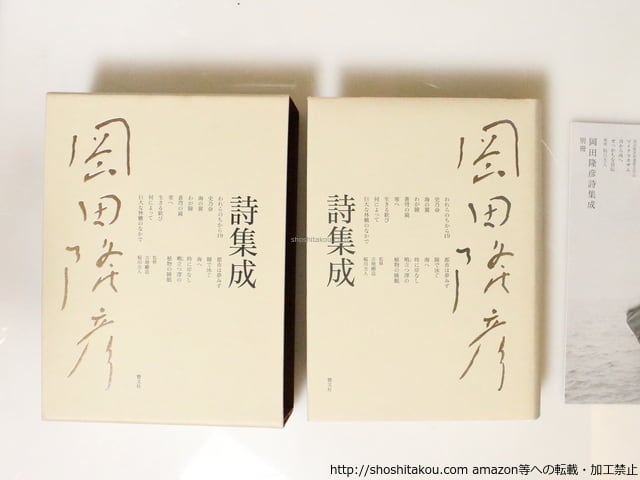 岡田隆彦
詩集成
われらのちから19
史乃命
海の翼
わが瞳
蒼穹の鏡
零へ
生きる歓び
何によって
巨大な林檎のなかで
都市は夢みず
鏡で泳ぐ
海へ
時に岸なし
鴫立つ澤の
植物の睡眠
監修
吉増剛造
稲川方人
響文社
岡田隆彦
詩集成
われらのちから19
史乃命
海の翼
わが瞳
蒼穹の鏡
零へ
生きる歓び
何によって
巨大な林檎のなかで
都市は夢みず
鏡で泳ぐ
海へ
時に岸なし
鴫立つ澤の
植物の睡眠
監修
吉増剛造
稲川方人
響文社
岡田隆彦詩集成
別冊
shoshitakou.com
http://shoshitakou.com amazon等への転載・加工禁止